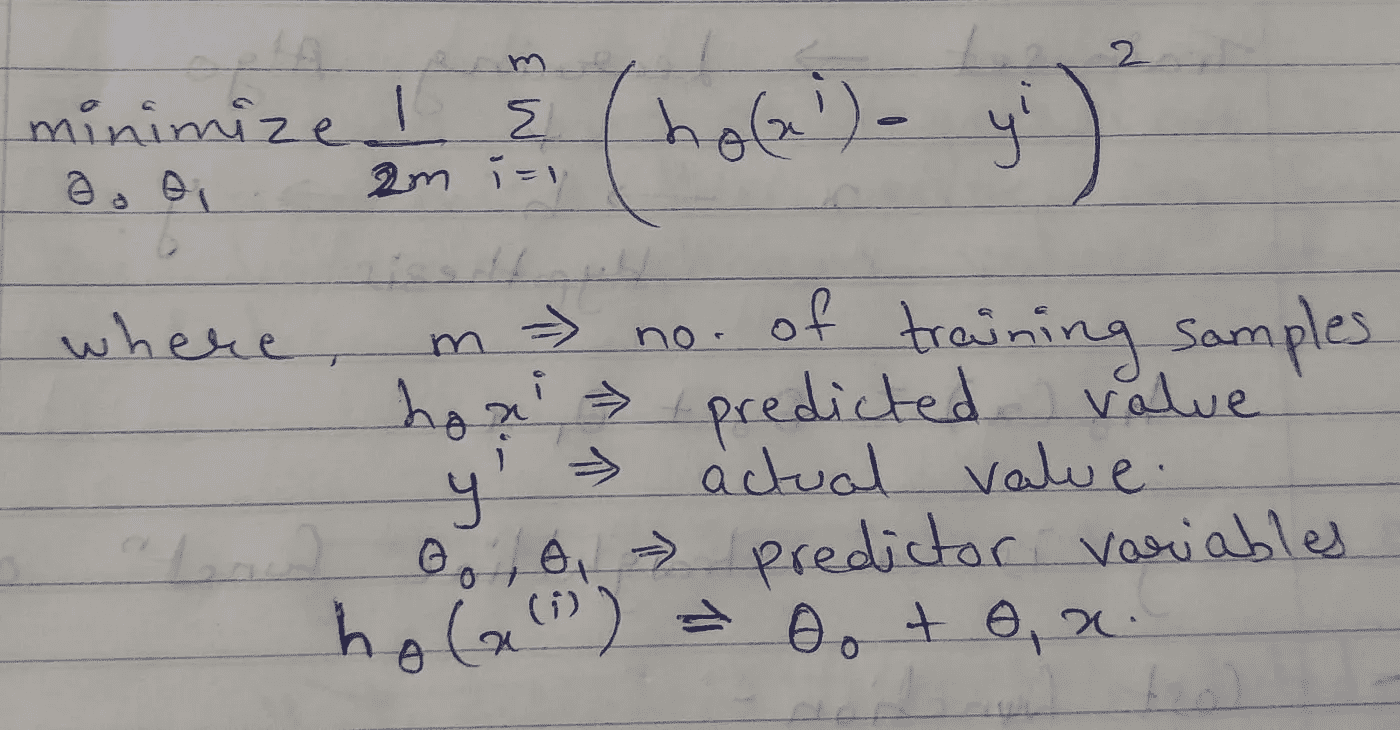 minimize 1/2m Σ_{i=1}^{m} (h_θ(x^i) - y^i)^2
θ_0 θ_1
where, m ⇒ no. of training samples
h_θ x^i ⇒ predicted value
y^i ⇒ actual value.
θ_0, θ_1 ⇒ predictor variables
h_θ(x^(i)) ⇒ θ_0 + θ_1 x.